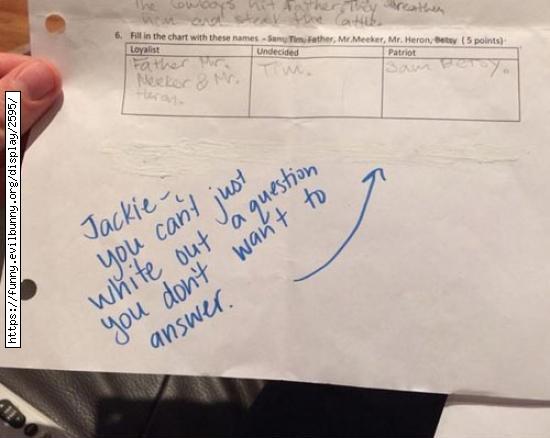 The Cowboys hit Father, They threaten
him and steal the Cattle.
6. Fill in the chart with these names – Sam, Tim, Father, Mr.Meeker, Mr. Heron, Betsy ( 5 points)
Loyalist Undecided Patriot
Father Mr. Tim. Sam Betsy.
Meeker & Mr.
Heron.
Jackie-
you can't just
white out a question
you don't want to
answer.
https://funny.evilbunny.org/display/2595/